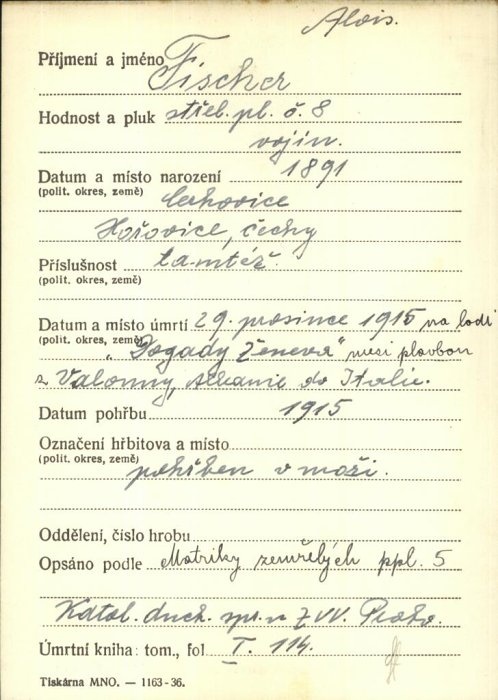 Alois.
Příjmení a jméno Fischer
Hodnost a pluk střel. pl. č. 8
vojín.
Datum a místo narození 1891
(polit. okres, země) Cerhovice
Hořovice, Čechy
Příslušnost tamtéž.
(polit. okres, země)
Datum a místo úmrtí 29. prosince 1915 na lodi
(polit. okres, země) „Dogady Ženeva" mezi plavbou
z Valonny, Albanie do Italie.
Datum pohřbu 1915
Označení hřbitova a místo
(polit. okres, země) pohřben v moři.
Oddělení, číslo hrobu
Opsáno podle Matriky zemřelých ppl. 5
Katol. duch. spr. ZVV. Praha.
Úmrtní kniha: tom., fol I. 114.
Tiskárna MNO. — 1163-36.